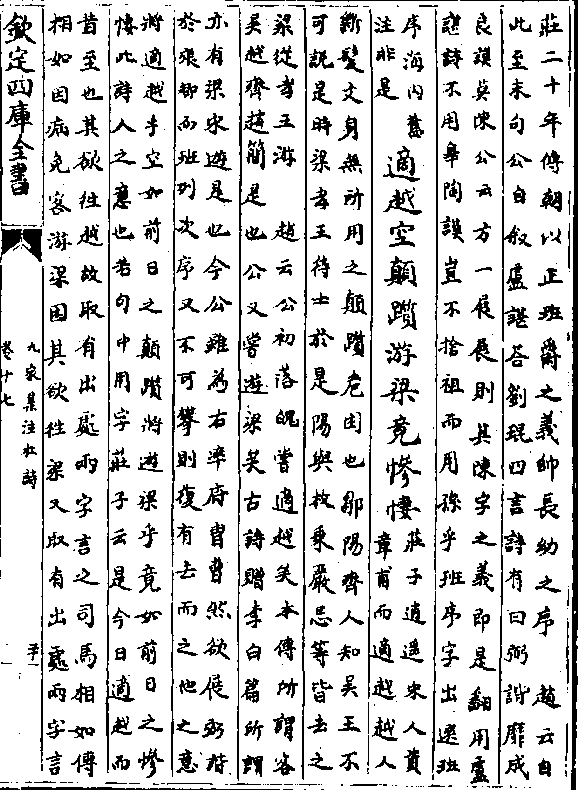 莊二十年傳朝以正班爵之義帥長幼之序 趙云自
此至末句公自敘盧諶答劉琨四言詩有曰弼諧靡成
良謨莫陳公云方一展展則其陳字之義即是翻用盧
諶詩不用皋陶謨豈不捨祖而用孫乎班序字出選班
序海内舊
注非是
適越空顛躓游梁竟慘悽
莊子逍遥宋人資
章甫而適越越人
斷髮文身無所用之顛躓危困也鄒陽齊人知吳王不
可説是時梁孝王待士於是陽與枚乗嚴忌等皆去之
梁從孝王游 趙云公初落魄嘗適越矣本傳所謂客
吳越齊趙簡是也公又嘗遊梁矣古詩贈李白篇所謂
亦有梁宋遊是也今公雖為右率府胄曹然欲展弼諧
於張卿而班列次序又不可攀則復有去而之他之意
將適越乎空如前日之顛躓將遊梁乎竟如前日之慘
悽此詩人之意也若句中用字莊子云是今日適越而
昔至也其欲往越故取有出處兩字言之司馬相如傳
相如因病免客游梁因其欲往梁又取有出處兩字言
欽定四庫全書
九家集注杜詩
卷十七